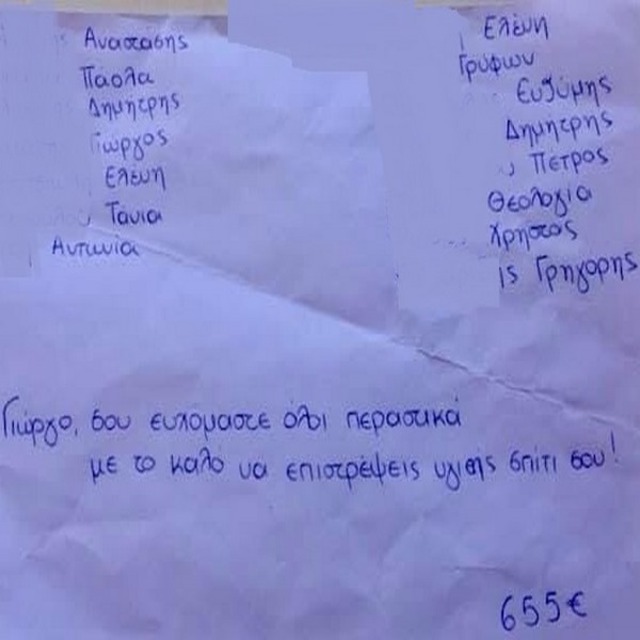 Αναστάσης
Πάολα
Δημήτρης
Γιώργος
Ελένη
Τάνια
Αντωνία
Ελένη
Τρύφων
Ευθύμης
Δημήτρης
Πέτρος
Θεολογία
Χρήστος
Γρηγόρης
Γιώργο, σου ευχόμαστε όλοι περαστικά
με το καλό να επιστρέψεις υγιής σπίτι σου!
655€